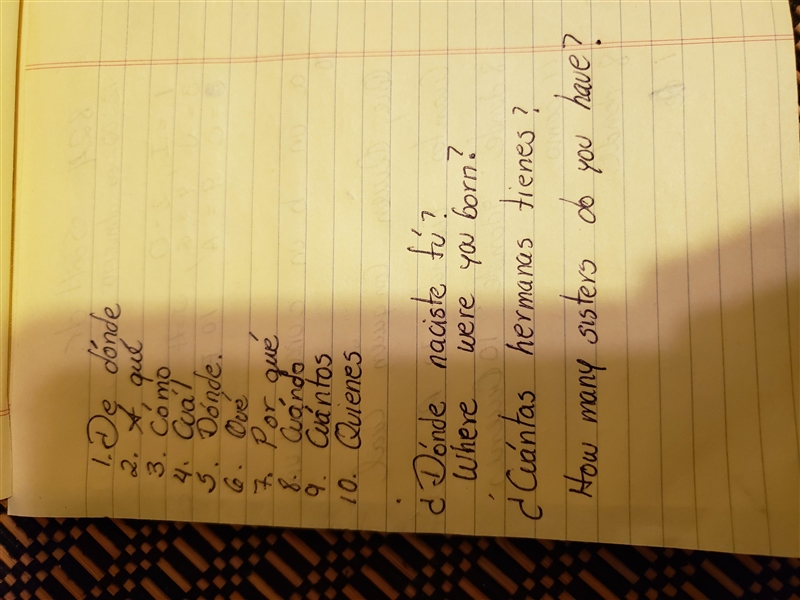 1. De dónde
2. A qué
3. Cómo
4. Cuál
5. Dónde.
6. Qué
7. Por qué
8. Cuándo
9. Cuántos
10. Quienes
¿Dónde naciste tú?
Where were you born?
¿Cuántas hermanas tienes?
How many sisters do you have?